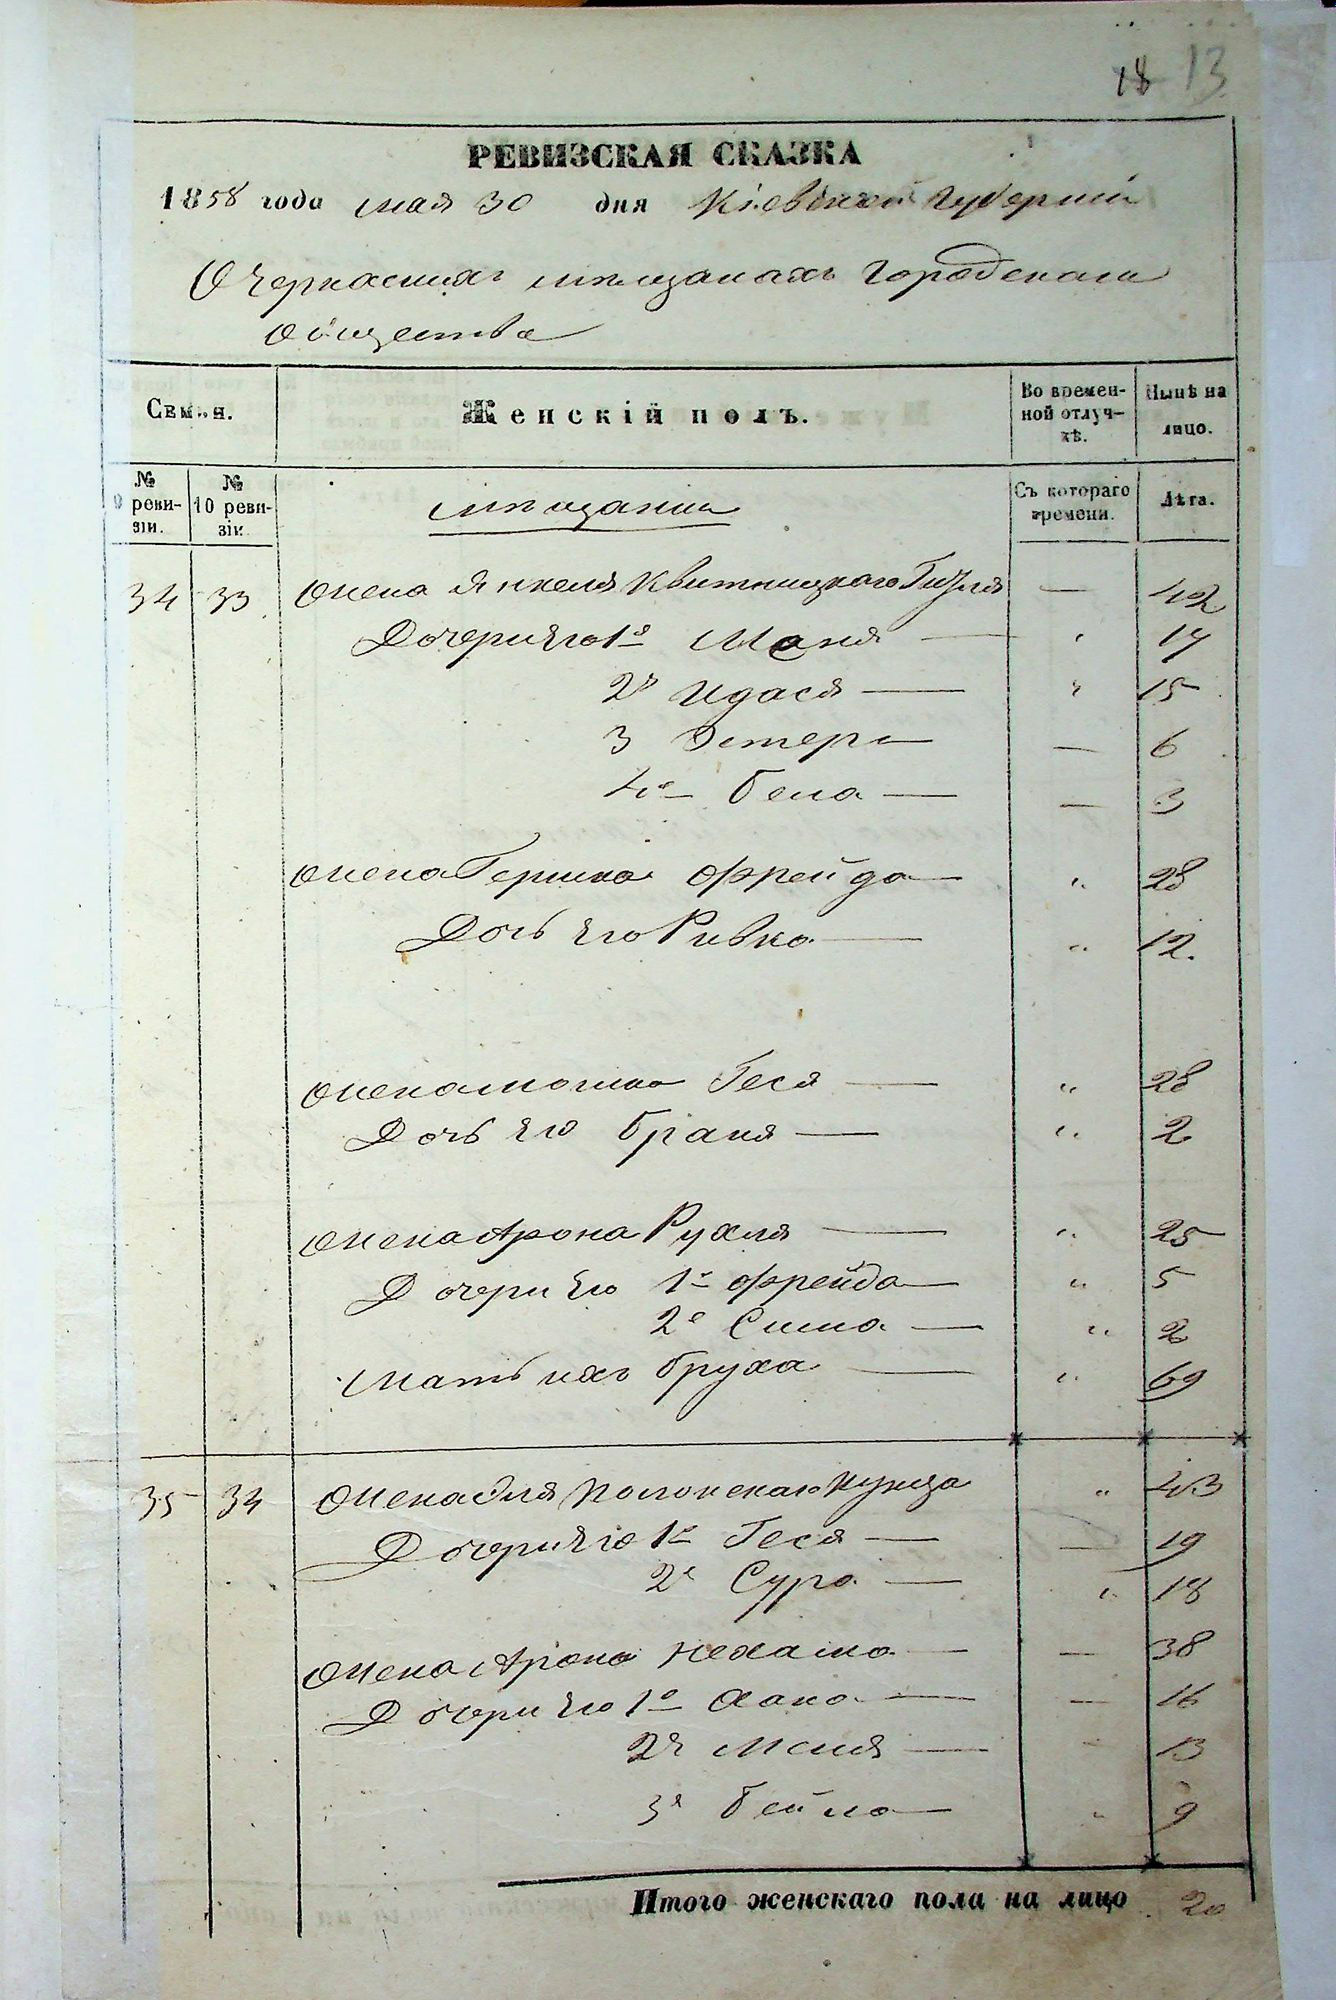 18 13
РЕВИЗСКАЯ СКАЗКА
1858 года мая 30 дня Кіевской Губерніи
О Черкасскихъ мѣщанахъ Городскаго
общества
Семья. Женскій полъ. Во времен-ной отлуч-кѣ. Нынѣ на лицо.
№ 9 реви-зіи. № 10 реви-зіи. мѣщанки Съ котораго времени. Лѣта.
34 33 Жена Янкеля Квитницкаго — 42
Дочери его 1я Маня — " 17
2я Идася — " 15
3 Эстеръ — — 6
4я Бела — — 3
Жена Гершка Фрейда — " 28
Дочь его Ривка — " 12.
Жена Мошка Геся — " 28
Дочь его Браня — " 2
Жена Арона Рухля — " 25
Дочери его 1я Фрейда — " 5
2я Сима — " 2
Мать ихъ Бруха — " 69
35 34 Жена Эля Полонскаго " 43
Дочери его 1я Геся — — 19
2я Сура — " 18
Жена Арона Нехама — — 38
Дочери его 1я Хана — — 16
2я — " 13
3я Бейла — " 9
Итого женскаго пола на лицо 20